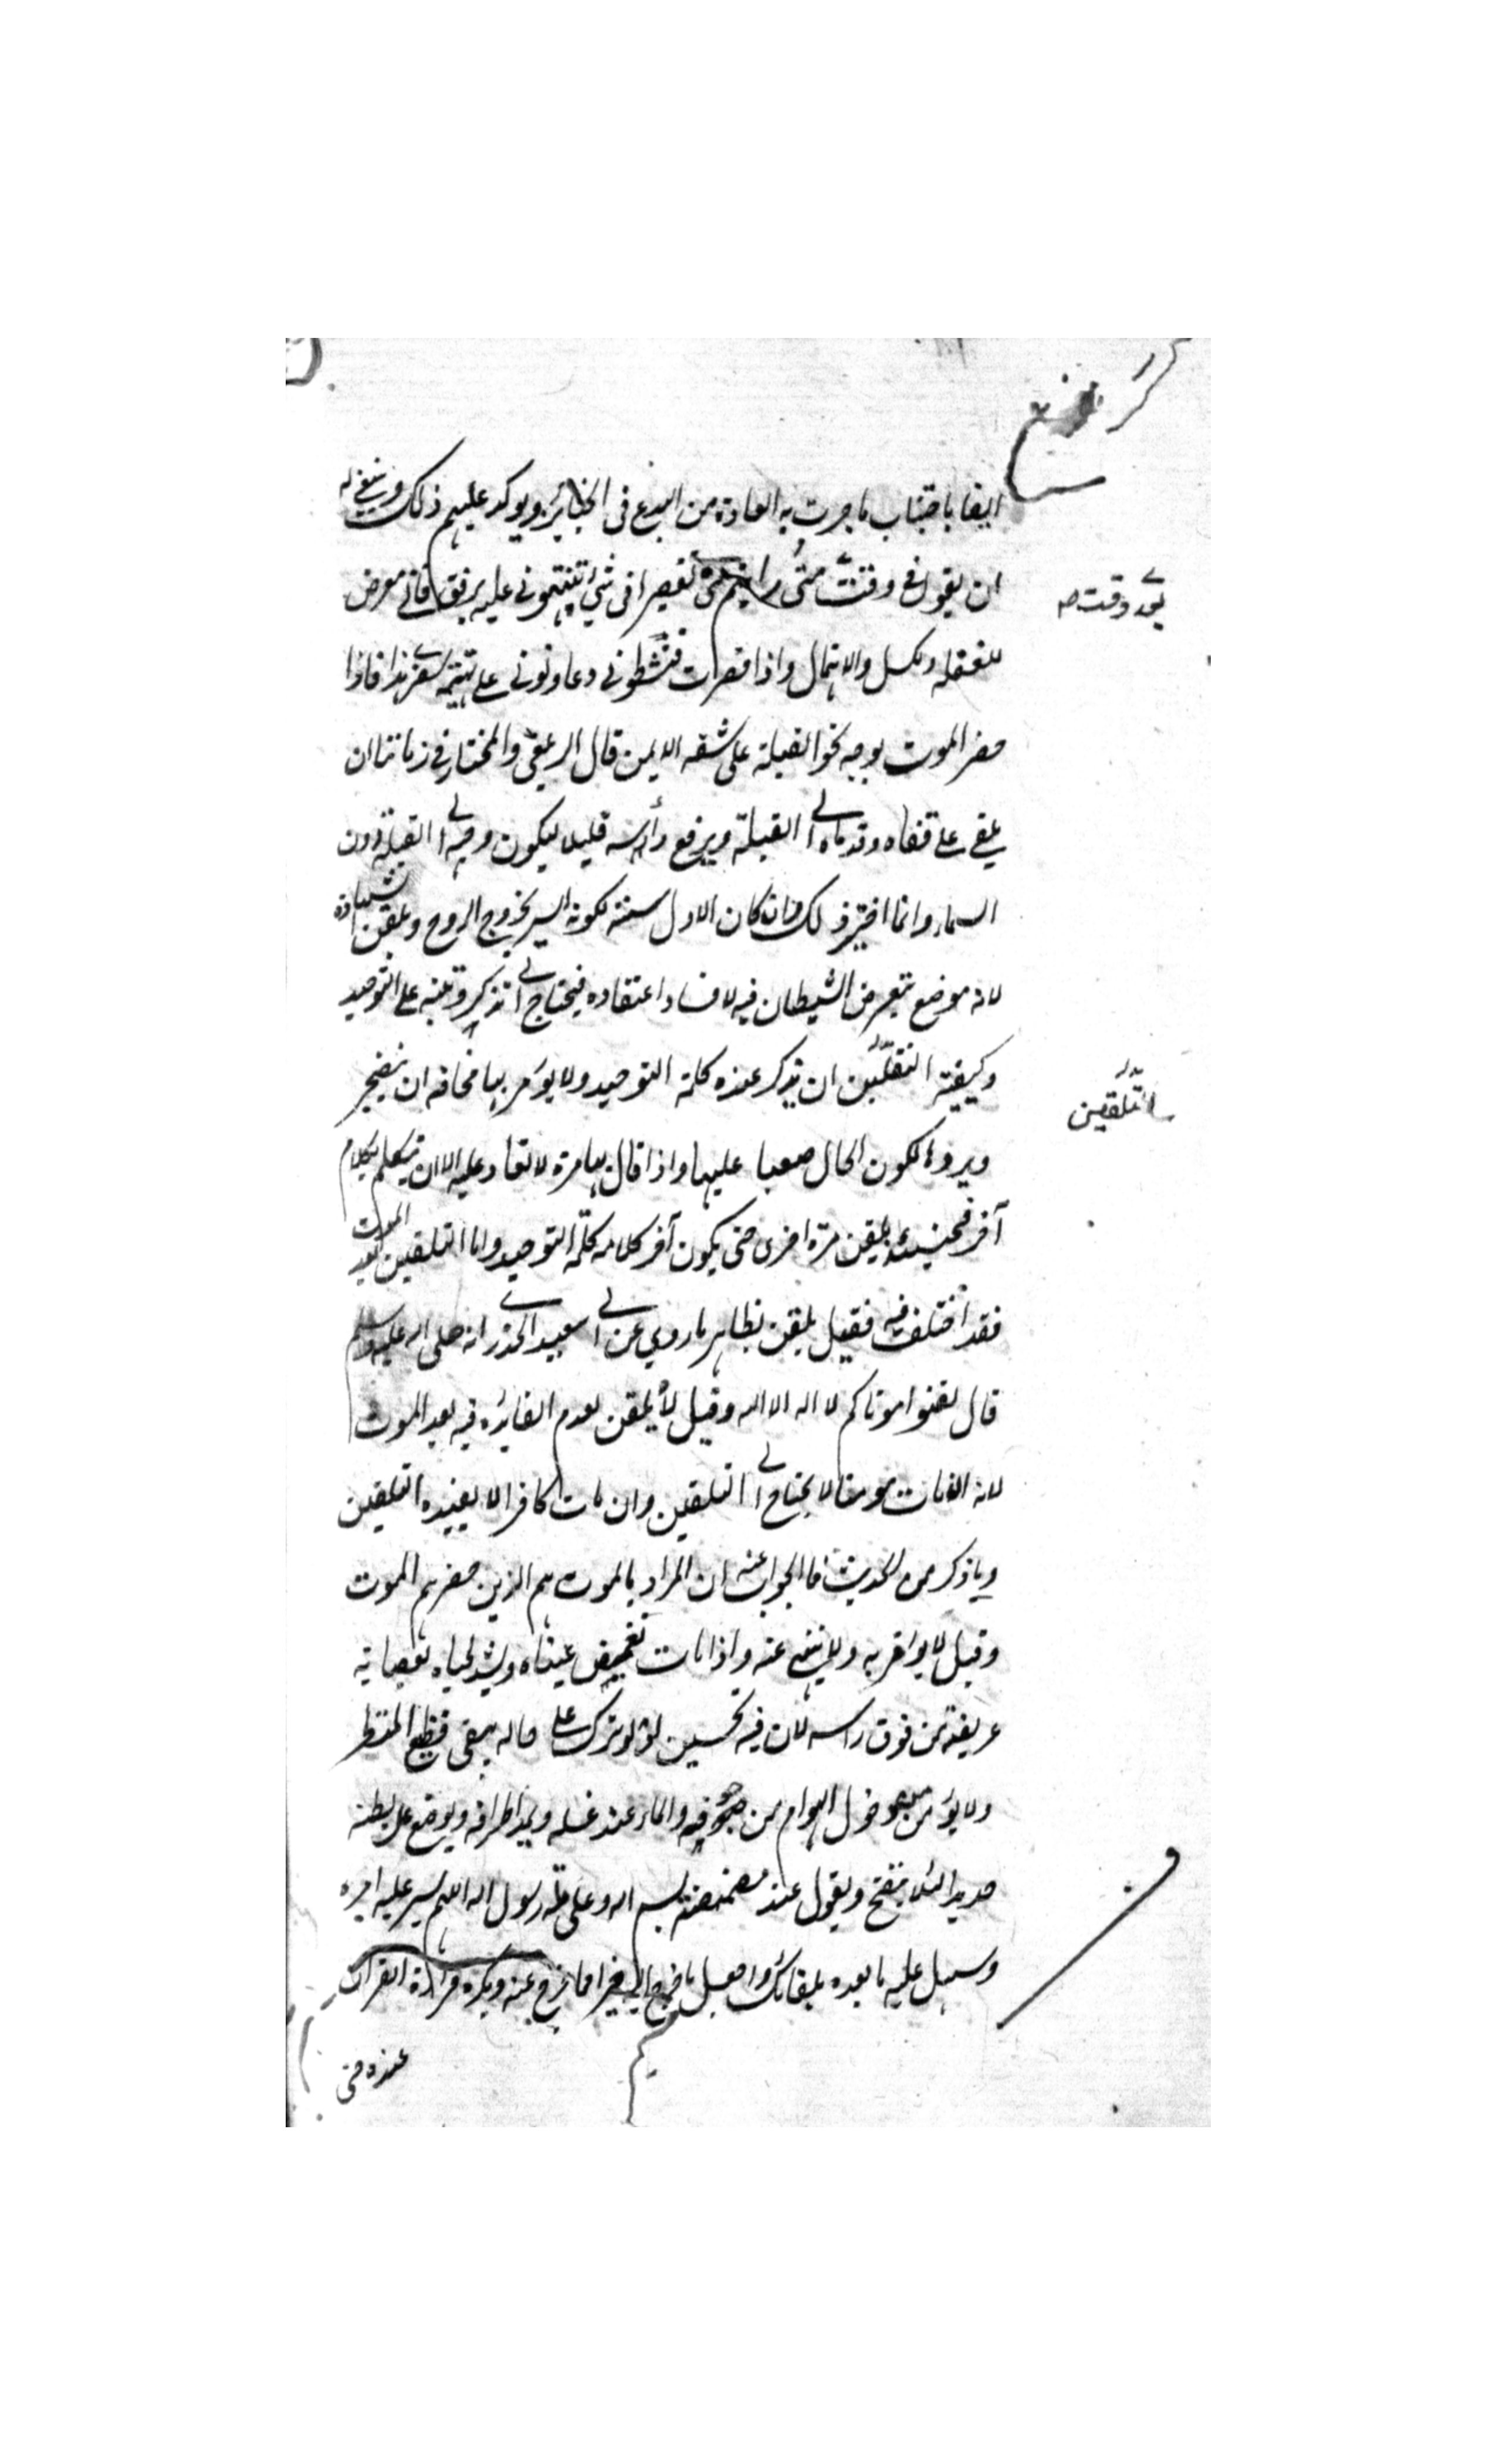 ايضا باجتناب ما جرت به العادة من البدع فى الجنائز ويوكد عليهم ذلك وينبغى له
ان يقول فى وقت متى رايتم منى تقصيرا فى شئ تنبهونى عليه برفق فانى معرض
بعد وقت صح
للغفلة وكسل والاهمال واذا قصرت فنشطونى وعاونونى على تهيئة سفرى هذا فاذا
حضر الموت يوجه نحو القبلة على شقه الايمن قال الزيلعى والمختار فى زماننا ان
يلقى على قفاه وقدماه الى القبلة ويرفع رأسه قليلا ليكون وجهه الى القبلة دون
السماء وانما اختير ذلك وان كان الاول سنة لكونه ايسر لخروج الروح ويلقن الشهادة
لانه موضع يتعرض الشيطان فيه لافساد اعتقاده فيحتاج الى تذكير وتنبيه على التوحيد
وكيفية التلقين ان يذكر عنده كلمة التوحيد ولا يؤمر بها مخافة ان يضجر
التلقين
ويردها لكون الحال صعبا عليها واذا قال بها مرة لا تعاد عليه الا ان يتكلم بكلام
آخر فحينئذ يلقن مرة اخرى حتى يكون آخر كلامه كلمة التوحيد واما التلقين بعد الموت
فقد اختلف فيه فقيل يلقن بظاهر ما روي عن ابى سعيد الخدرى انه صلى الله عليه وسلم
قال لقنوا موتاكم لا اله الا الله وقيل لا يلقن لعدم الفائدة فيه بعد الموت
لانه ان مات مومنا لا يحتاج الى التلقين وان مات كافرا لا يفيده التلقين
وما ذكر من الحديث فالجواب عنه ان المراد بالموت هم الذين حضرهم الموت
وقيل لا يؤمر به ولا ينهى عنه واذا مات تغميض عيناه ويشد لحياه بعصابة
عريضة من فوق راسه لان فيه تحسين لو ترك على حاله يبقى فظيع المنظر
ولا يؤمن من دخول الهوام من جوفه والماء عند غسله ويمد اطرافه ويوضع على بطنه
حديد لئلا ينتفخ ويقول عند بسم الله وعلى ملة رسول الله اللهم يسر عليه امره
وسهل عليه ما بعده بلقائك واجعل ما خرج اليه خيرا مما خرج عنه ويكره قراءة القران
عنده حتى